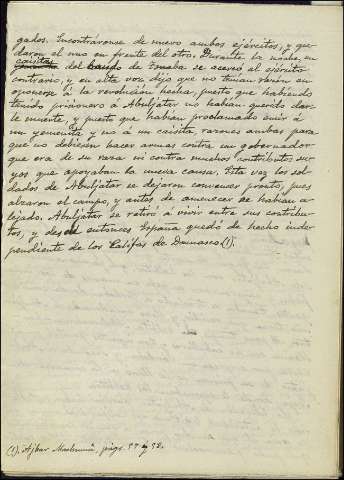 gados. Encontráronse de nuevo ambos ejércitos, y que-
daron el uno en frente del otro. Durante la noche, un
caisita
del bando de Tsuaba se acercó al ejército
contrario, y en alta voz dijo que no tenían razón en
oponerse á la revolución hecha, puesto que habiendo
tenido prisionero á Abuljatar no habían querido dar-
le muerte, y puesto que habían proclamado emir á
un yemenita y no á un caisita, razones ambas para
que no debiesen hacer armas contra un gobernador
que era de su raza ni contra muchos contribulos su-
yos que apoyaban la nueva causa. Esta voz los sol-
dados de Abuljatar se dejaron convencer pronto, pues
alzaron el campo, y antes de amanecer se habían a-
lejado. Abuljatar se retiró á vivir entre sus contribu-
los, y desde entonces España quedó de hecho inde-
pendiente de los Califas de Damasco (1).
(1). Ajbar Machmuâ, págs. 57 y 58.